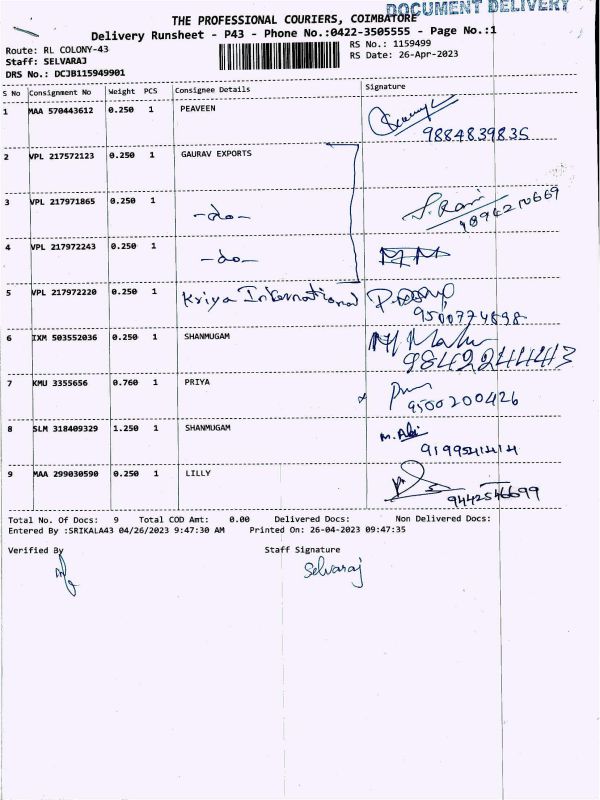 DOCUMENT DELIVERY
THE PROFESSIONAL COURIERS, COIMBATORE
Delivery Runsheet - P43 - Phone No.:0422-3505555 - Page No.:1
Route: RL COLONY-43
Staff: SELVARAJ
DRS No.: DCJB115949901
RS No.: 1159499
RS Date: 26-Apr-2023
S No Consignment No Weight PCS Consignee Details Signature
1 MAA 570443612 0.250 1 PEAVEEN
9884839835
2 VPL 217572123 0.250 1 GAURAV EXPORTS
3 VPL 217971865 0.250 1 -do- J. Rani
1894210669
4 VPL 217972243 0.250 1 -do-
5 VPL 217972220 0.250 1 Kriya International
9500774898
6 IXM 503552036 0.250 1 SHANMUGAM
9842244443
7 KMU 3355656 0.760 1 PRIYA
9500200426
8 SLM 318409329 1.250 1 SHANMUGAM M. Abi
9 MAA 299030590 0.250 1 LILLY
9442546699
Total No. Of Docs: 9 Total COD Amt: 0.00 Delivered Docs: Non Delivered Docs:
Entered By :SRIKALA43 04/26/2023 9:47:30 AM Printed On: 26-04-2023 09:47:35
Verified By Staff Signature
Selvaraj